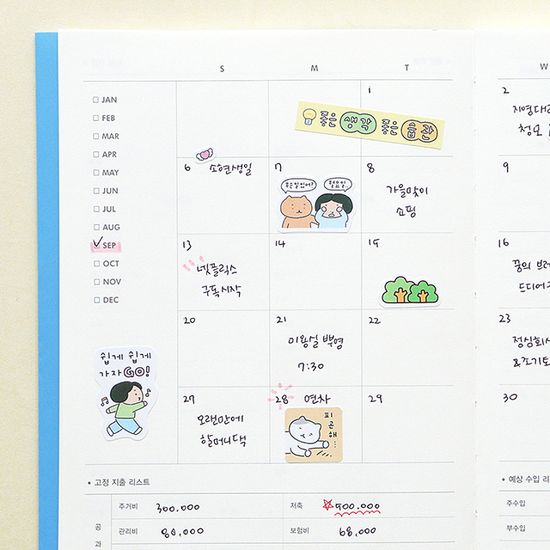 S M T W
JAN
FEB
MAR
APR
MAY
JUN
JUL
AUG
SEP
OCT
NOV
DEC
1
좋은 생각 좋은 습관
2
지영대
청모
6 소현생일
7
8
가을맞이
쇼핑
9
13
넷플릭스
구독시작
14
15
16
꿈의
드디어
20
21
미왕실 백명
7:30
22
23
정심회사
&조기
쉽게 쉽게
가자 GO!
27
오랜만에
할머니댁
28 연차
피
곤
해
29
30
고정 지출 리스트
예상 수입
주거비 300,000
저축 900,000
주수입
공
과
관리비 80,000
보험비 68,000
부수입